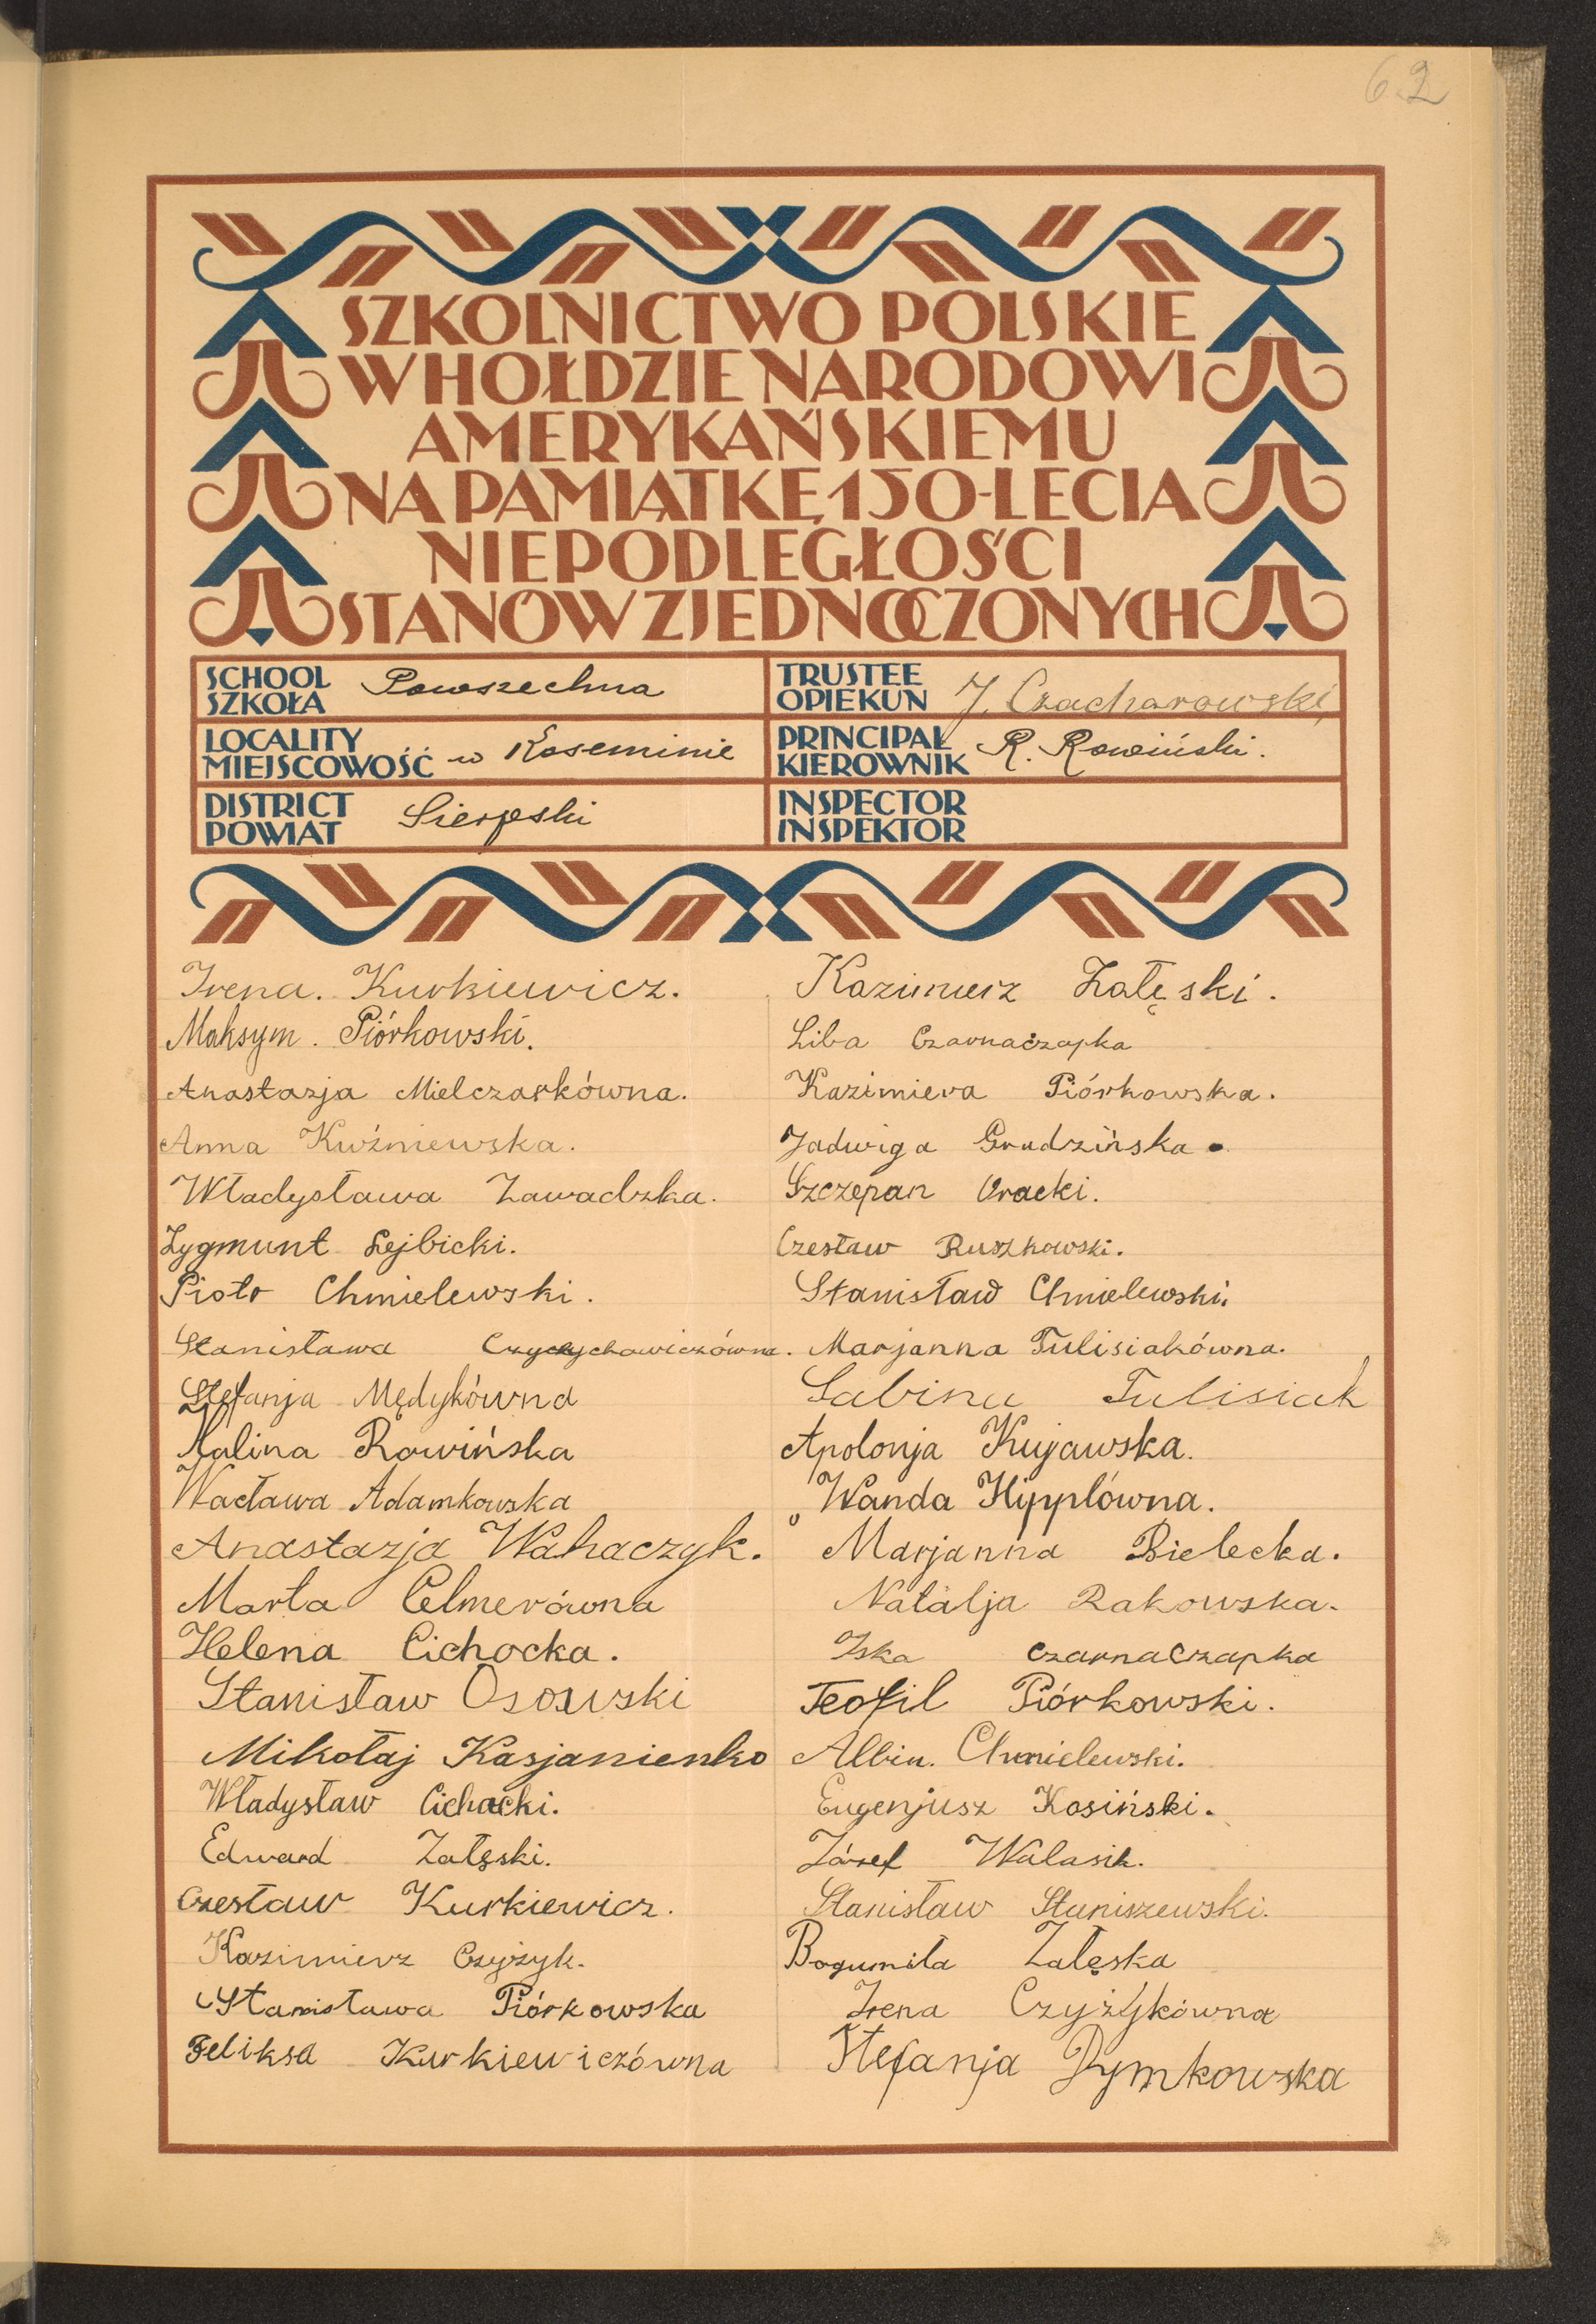 62
SZKOLNICTWO POLSKIE
W HOŁDZIE NARODOWI
AMERYKAŃSKIEMU
NA PAMIĄTKĘ 150-LECIA
NIEPODLEGŁOŚCI
STANÓW ZJEDNOCZONYCH
SCHOOL
SZKOŁA Powszechna
TRUSTEE
OPIEKUN J. Czacharowski
LOCALITY
MIEJSCOWOŚĆ w Koseminie
PRINCIPAL
KIEROWNIK R. Rowiński.
DISTRICT
POWIAT Sierpski
INSPECTOR
INSPEKTOR
Irena. Kurkiewicz.
Maksym. Piórkowski.
Anastazja Mielczarkówna.
Anna Kuźniewska.
Władysława Zawadzka.
Zygmunt Lejbicki.
Piotr Chmielewski.
Stanisława
Stefanja Mędykówna
Halina Rowińska
Wacława Adamkowska
Anastazja Wahaczyk.
Marta Celmerówna
Helena Cichocka.
Stanisław Ososwski
Mikołaj Kasjanienko
Władysław Cichacki.
Edward Załęski.
Czesław Kurkiewicz.
Kazimierz Czyżyk.
Stanisława Piórkowska
Feliksa Kurkiewiczówna
Kazimierz Załęski.
Liba Czarnaczapka
Kazimiera Piórkowska.
Jadwiga Grudzińska.
Szczepan Oracki.
Czesław Ruszkowski.
Stanisław Chmielewski.
Marjanna Tulisiakówna.
Sabina Tulisiak
Apolonja Kujawska.
Wanda Hipplówna.
Marjanna Bielecka.
Natalja Rakowska.
Iska Czarnaczapka
Teofil Piórkowski.
Albin. Chmielewski.
Eugenjusz Kosiński.
Józef Walasik.
Stanisław Staniszewski.
Bogumiła Załęska
Irena Czyżykówna
Stefanja Dymkowska